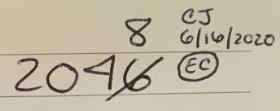 8 CJ
6/16/2020
2046 EC